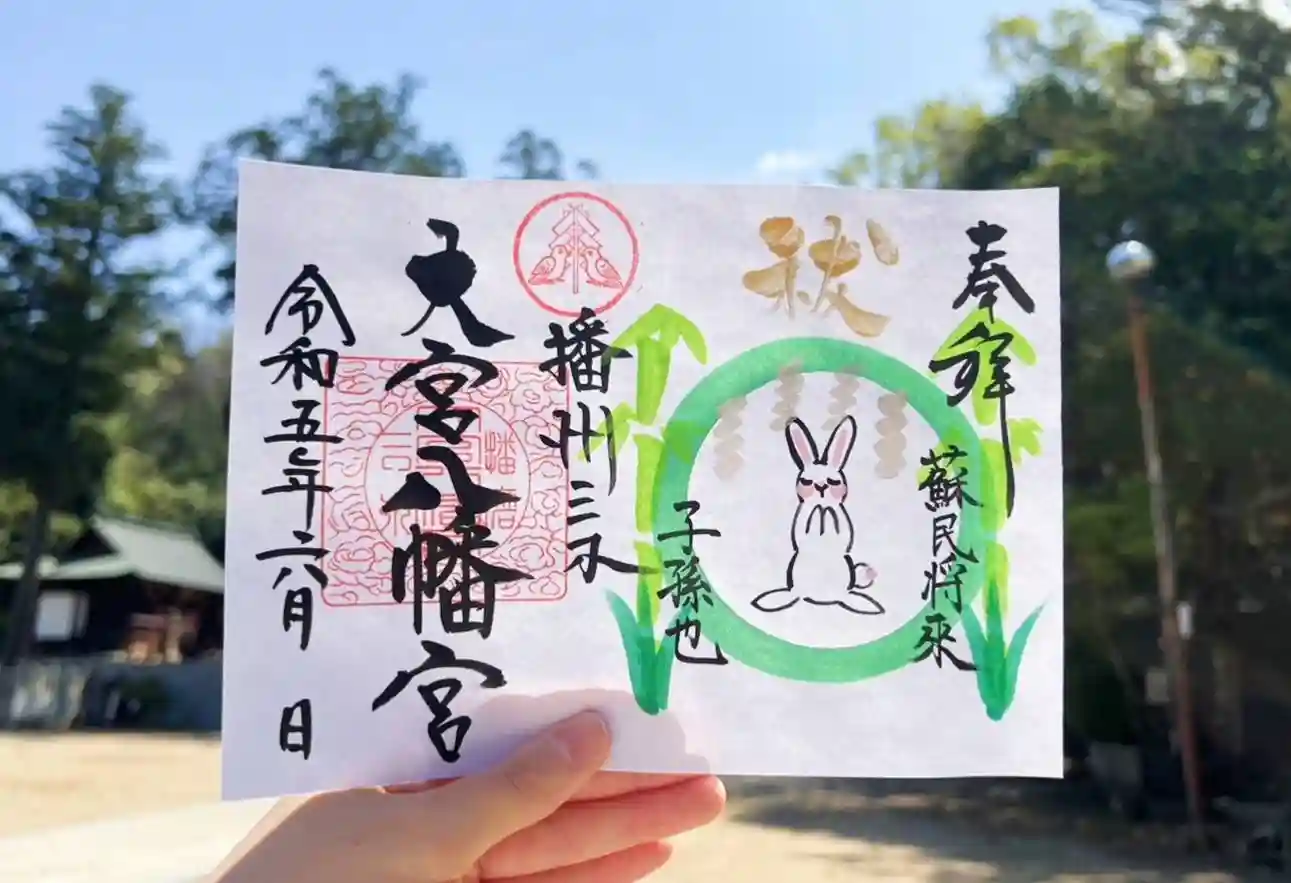 奉拝
蘇民将來
祓
子孫也
播州三木
大宮八幡宮
令和五年六月 日